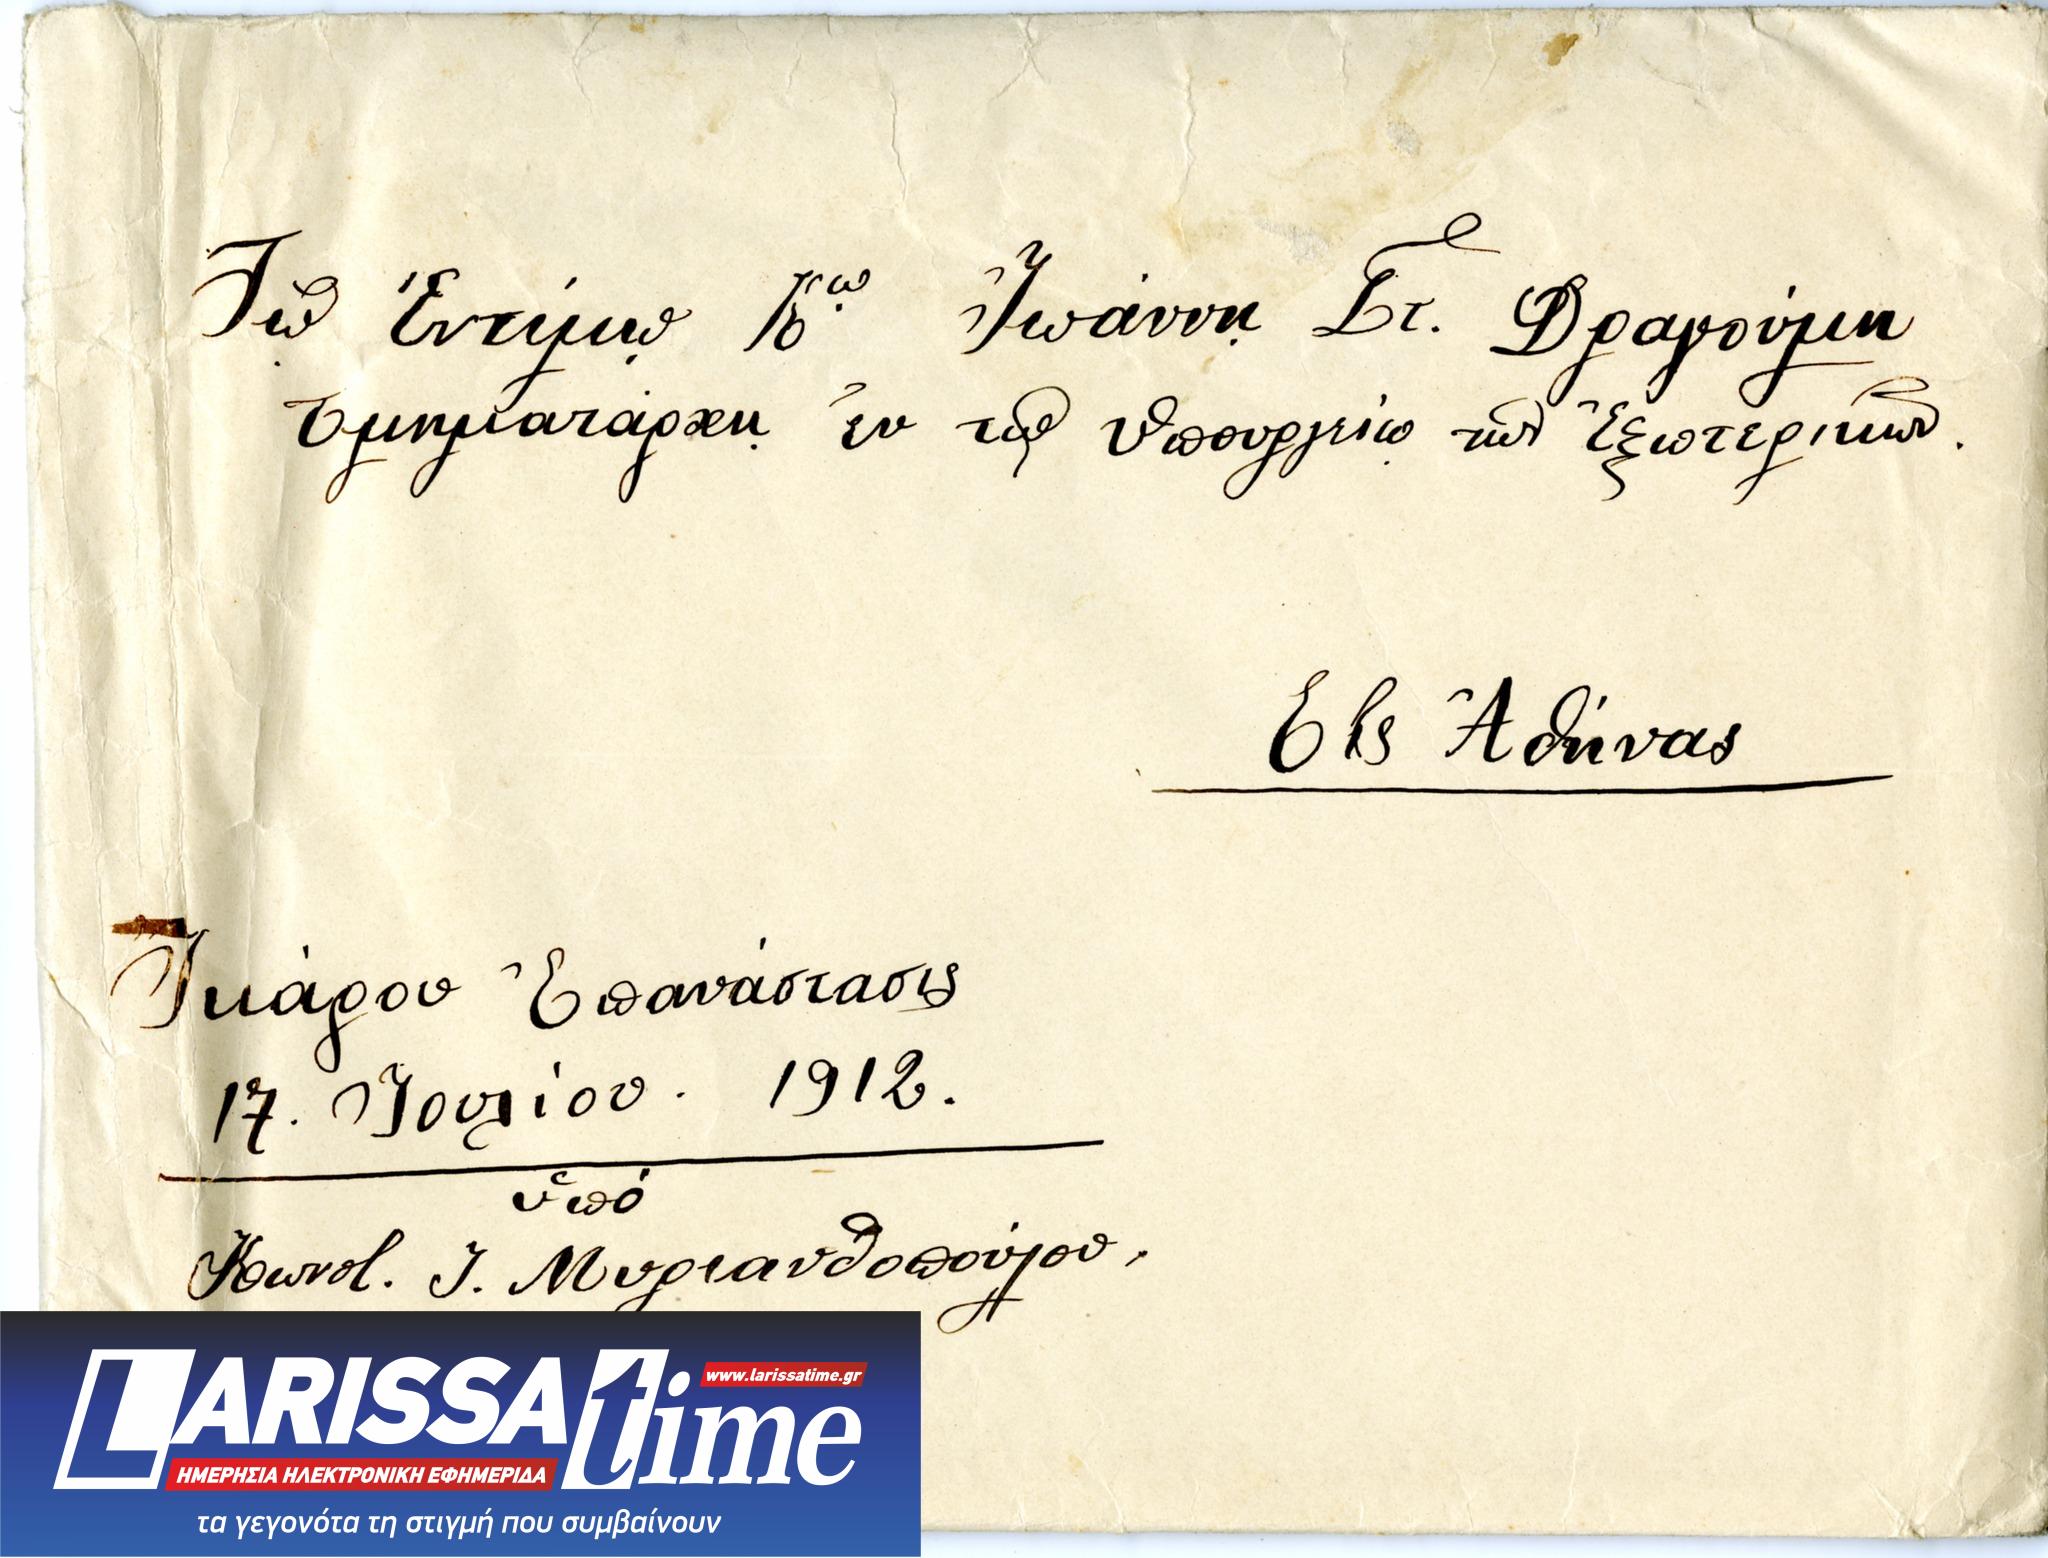 Τῷ Ἐντίμῳ Κῳ Ἰωάννῃ Στ. Δραγούμη
τμηματάρχῃ ἐν τῷ Ὑπουργείῳ τῶν Ἐξωτερικῶν.
Εἰς Ἀθήνας
Ἰκάρου Ἐπανάστασις
17. Ἰουλίου. 1912.
ὑπό
Κωνστ. Ι. Μυριανθοπούλου.
LARISSAtime
www.larissatime.gr
ΗΜΕΡΗΣΙΑ ΗΛΕΚΤΡΟΝΙΚΗ ΕΦΗΜΕΡΙΔΑ
τα γεγονότα τη στιγμή που συμβαίνουν